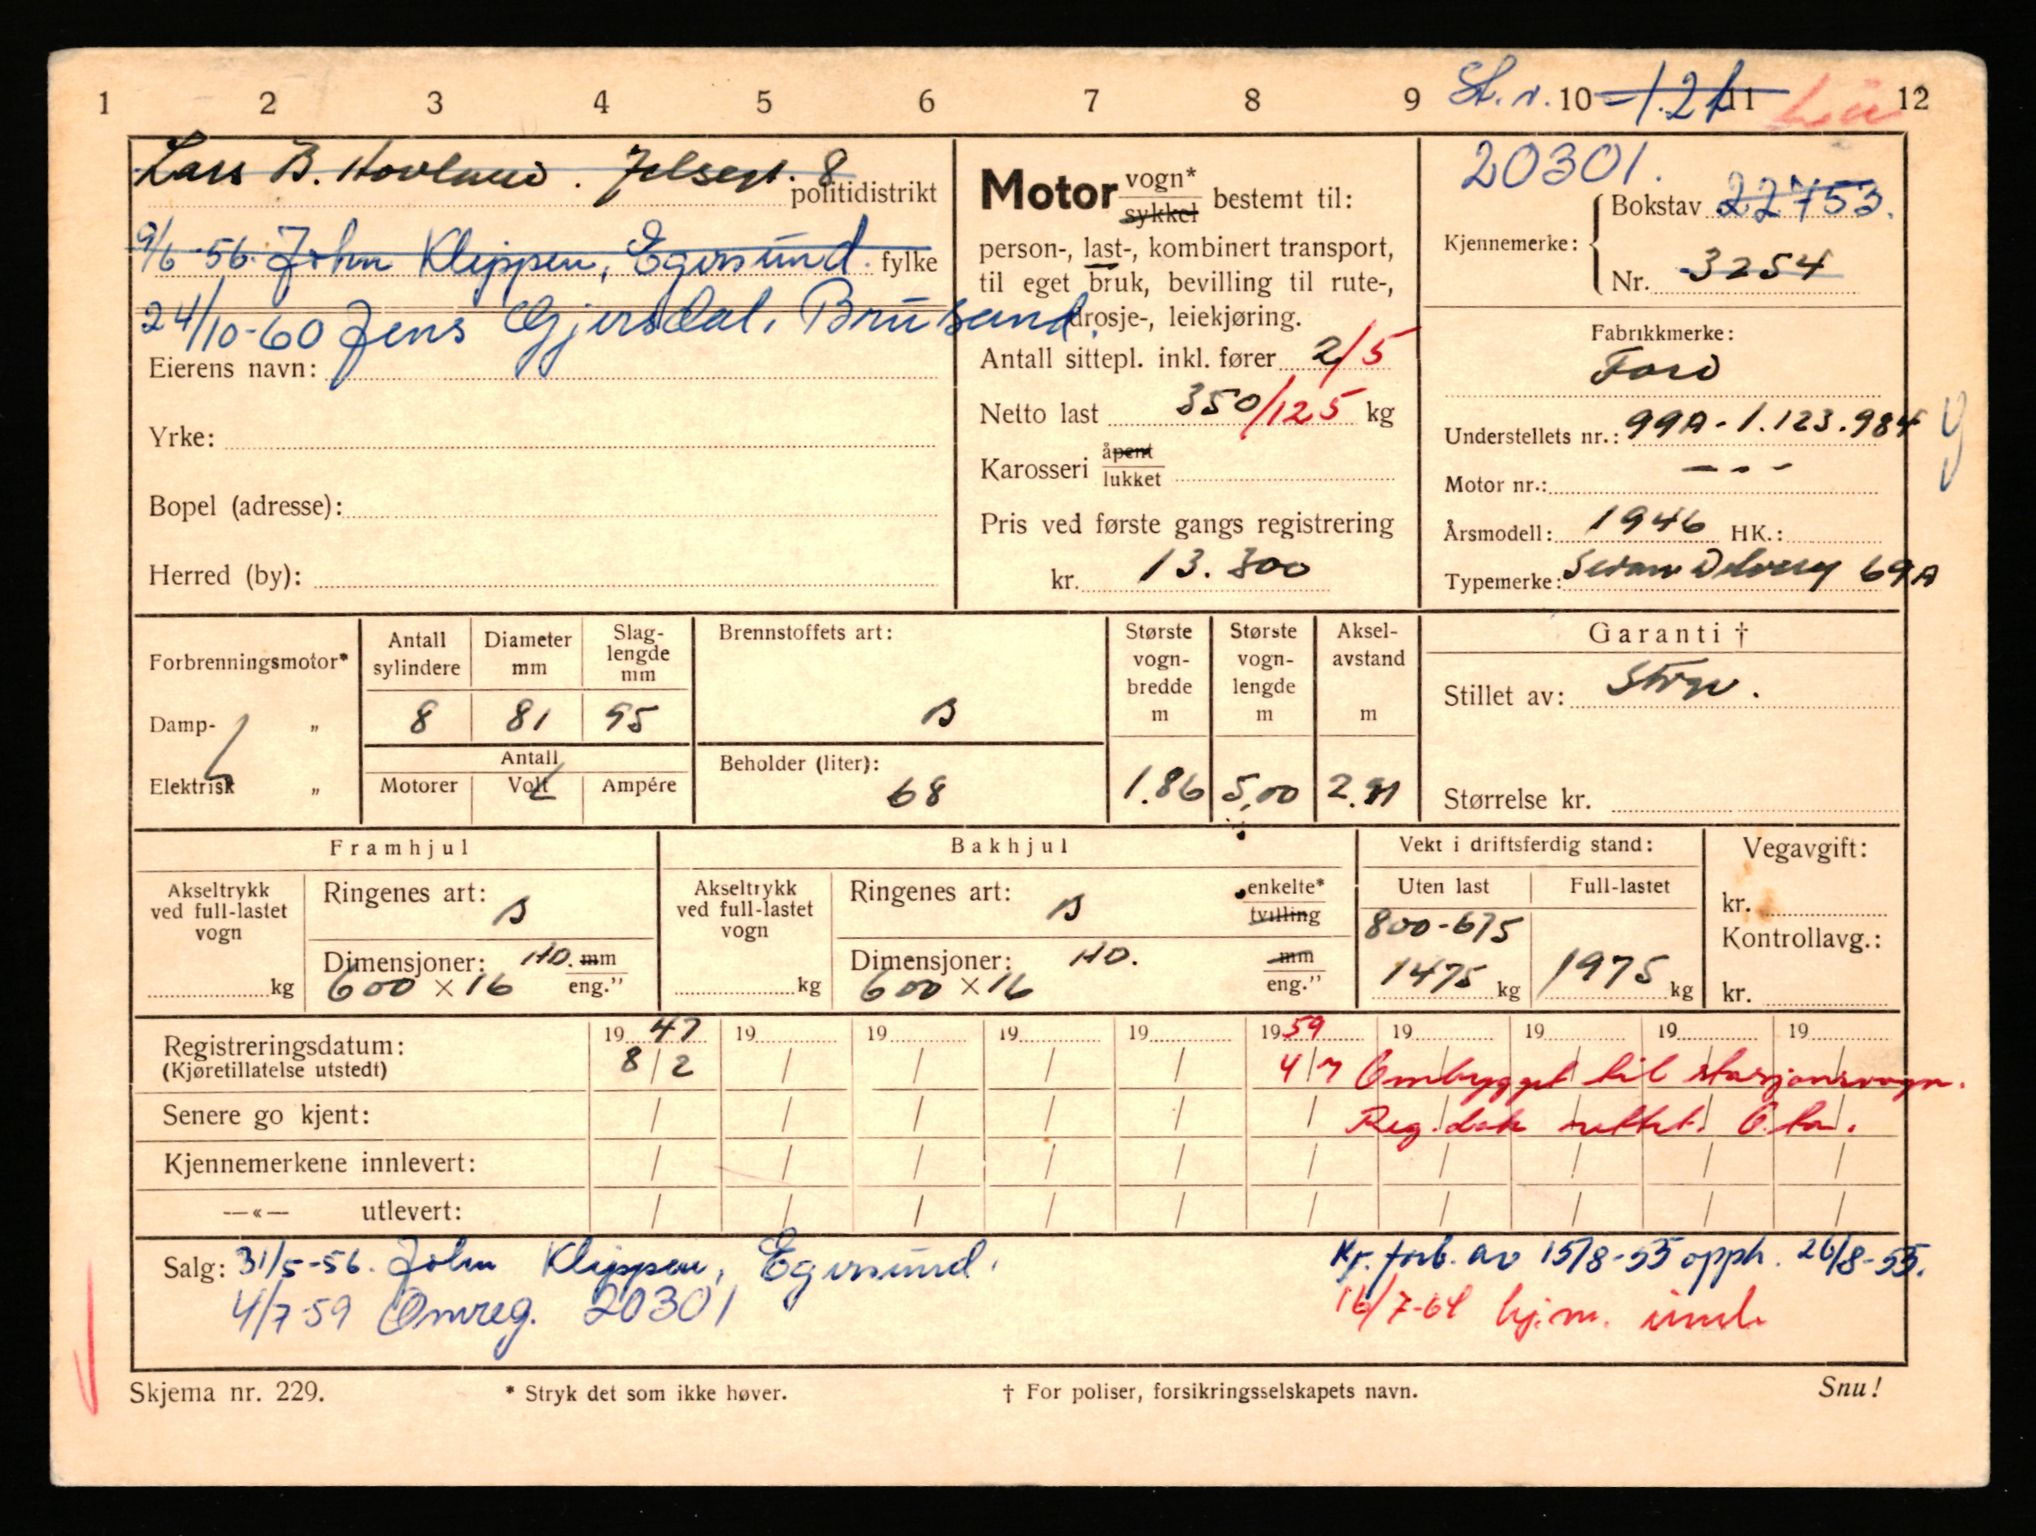 1 2 3 4 5 6 7 8 9 St.v. 10 11 12
Lars B. Hovland. 8
politidistrikt
9/6-56. John Klippen, Egersund. fylke
24/10-60 Jens Gjersdal, Brusand.
Eierens navn:
Yrke:
Bopel (adresse):
Herred (by):
Motor vogn*
sykkel bestemt til:
person-, last-, kombinert transport,
til eget bruk, bevilling til rute-,
drosje-, leiekjøring.
Antall sittepl. inkl. fører 2/5
Netto last 350/125 kg
Karosseri åpent
lukket
Pris ved første gangs registrering
kr. 13.300
20301.
Kjennemerke: Bokstav 22753.
Nr. 3254
Fabrikkmerke:
Ford
Understellets nr.: 99A-1.123.984
Motor nr.: - - -
Årsmodell: 1946 HK.:
Typemerke: Sedan Delvery 69A
Forbrenningsmotor*
Damp- „
Elektrisk „
Antall sylindere Diameter mm Slag-lengde mm
8 81 95
Antall
Motorer Volt Ampére
Brennstoffets art:
B
Beholder (liter):
68
Største vogn-bredde m
1.86
Største vogn-lengde m
5,00
Aksel-avstand m
2.91
Garanti †
Stillet av:
Størrelse kr.
Framhjul
Akseltrykk ved full-lastet vogn
kg
Ringenes art: B
Dimensjoner: HD. mm
600 x 16 eng.”
Bakhjul
Akseltrykk ved full-lastet vogn
kg
Ringenes art: B enkelte*
tvilling
Dimensjoner: HD. mm
600 x 16 eng.”
Vekt i driftsferdig stand:
Uten last Full-lastet
800-675
1475 kg 1975 kg
Vegavgift:
kr.
Kontrollavg.:
kr.
19 47 19 19 19 19 19 59 19 19 19 19
Registreringsdatum:
(Kjøretillatelse utstedt) 8/2 / / / / 4/7 Ombygget til stasjonsvogn.
Senere go kjent: / / / / / / Reg.dak rettet.
Kjennemerkene innlevert: / / / / / / / / / /
—«— utlevert: / / / / / / / / / /
Salg: 31/5-56. John Klippen, Egersund. Kj. forb. av 15/8-55 opph. 26/8-55.
4/7-59 Omreg. 20301 16/7-64 kj.m. innl.
Skjema nr. 229. * Stryk det som ikke høver. † For poliser, forsikringsselskapets navn. Snu!